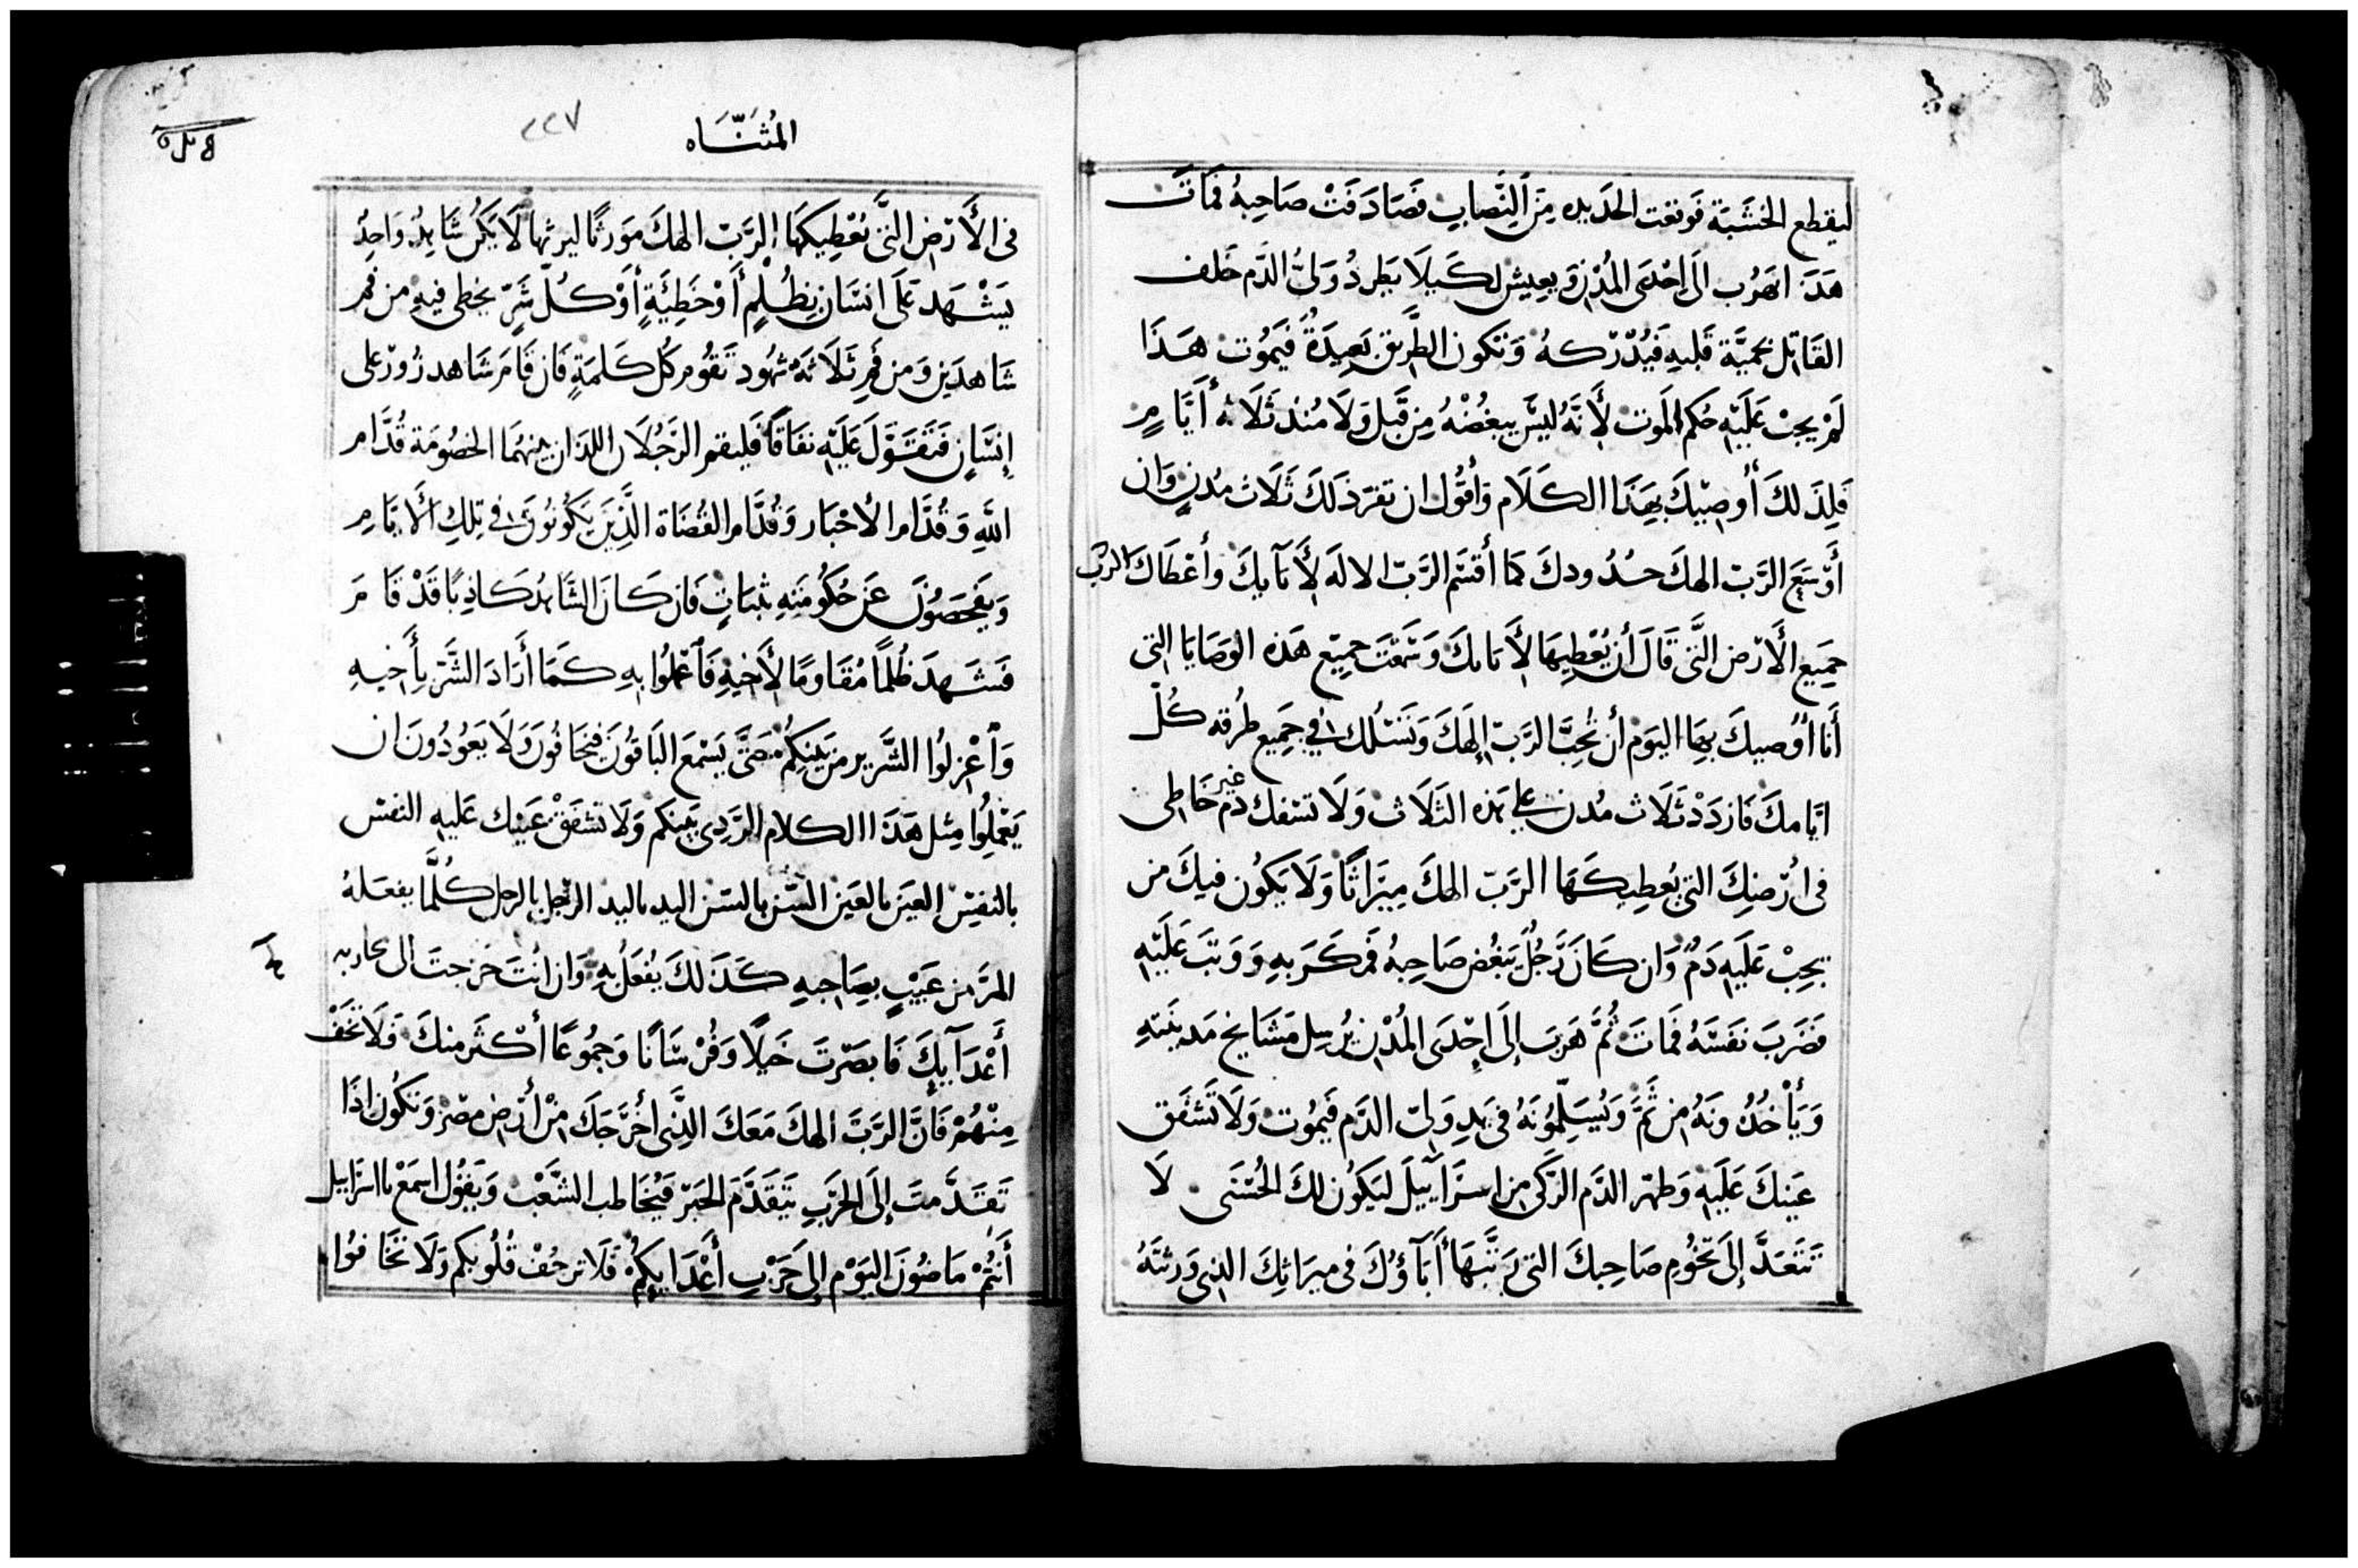 ليقطع الخشَبَة فَوقعَت الحَديده مِنَ النِّصابِ فصَادَفَتْ صَاحِبهُ فمَاتَ
هَذَا يَهرُب الَى اِحْدَى المُدْنِ وَيعِيش لكَيلَا يَطردُ وَلىُّ الدَّم خَلف
القَاتِل بحَميَّة قَلبهِ فَيُدْركهُ وَتكون الطَّريق بَعِيدَةً فيَمُوت هَذَا
لَمْ يجبْ عَلَيْهِ حُكم المَوت لِأَنَّهُ ليسَ يبغُضْهُ مِن قَبل وَلَا مُنذ ثَلَاثة أَيَّامٍ
فَلِذَلكَ أُوصِيْكَ بهَذَا الكَلَام وَأقُول ان تفرَز لَكَ ثَلَاث مُدنٍ وَان
أَوْسَعَ الرَّبّ الهكَ حدُودكَ كمَا أَقسَم الرَّبّ الاله لِأَبَايكَ وأعْطَاكَ الربّ
جَمِيع الأَرْض الَّتى قَالَ أن يُعْطِيهَا لِأَبَايكَ وَسَمْعتَ جمِيْع هَذه الوَصَايَا التى
أَنَا أُوصيكَ بهَا اليَوم أن تُحِبَّ الرَّبّ إلهَكَ وَتَسْلُك في جَمِيع طُرقه كُلّ
ايَّامكَ فَازدَدْ ثَلَاث مُدن على هَذه الثَلَاث وَلَا تسْفك دَم غير خَاطِى
فى أَرْضِكَ التى يُعطِيكَهَا الرَّبّ الهكَ مِيَرَاثًا وَلَا يَكُون فيكَ مَن
يجِبْ عَلَيهِ دَمٌ وَان كَانَ رَجُل يَبغُض صَاحِبهُ فمَكَرَ بهِ وَوَثبَ عَلَيْهِ
فضَرَبَ نفَسَهُ فمَاتَ ثُمَّ هَربَ إلَى اِحْدَى المُدْنِ يُرسِل مَشَايخ مَدينَتهِ
وَيَأْخُذُونَهُ مِن ثَمَّ وَيُسَلِّمُونَهُ فى يَدِ وَلىّ الدَّم فيَمُوت وَلَا تَشفَق
عَينكَ عَلَيهِ وَطَهّر الدَّم الزَكى مِن اِسرَآيِيلَ ليَكُون لكَ الحُسْنَى لَا
تَتَعَدَّ إلَى تُخُومِ صَاحِبكَ التى رَتَّبهَا أَبَآؤُكَ فى مِيرَاثِكَ الذِى وَرثتَهُ
المُثَنَّاه
٢٢٧
فى الأَرْض الَّتى يُعْطِيكَهَا الرَّبّ الهكَ مَورثًا ليرثها لَا يَكُن شَاهِدٌ وَاحِدٌ
يَشْهَد عَلَى انسَان بظُلْمٍ أَوْ خَطِيَّةٍ أَوْ كُلّ شَرٍّ يخطى فيهِ من فم
شَاهدَين وَمن فم ثَلَاثَة شهُود تَقُوم كُل كَلمَةٍ فَان قَامَ شَاهد زُور على
إنسَانٍ فَتَقَوَّلَ عَلَيْهِ نفَاقًا فَليقم الرَّجُلَان اللذَان بينهُمَا الخصُومَة قُدَّام
اللهِ وَقُدَّام الأَحْبَار وَقُدَّام القُضَاة الَّذِينَ يَكُونُونَ فى تِلكِ الأَيَّامِ
وَيَفْحَصُونَ عَن حُكُومَتهِ بثبَاتٍ فَان كَانَ الشَّاهِدُ كَاذِبًا قَدْ قَامَ
فشَهدَ ظُلمًا مُقَاومًا لِأَخيهِ فَاعْمَلُوا بهِ كَمَا أرَادَ الشَّرّ بِأَخيهِ
وَاعْزلُوا الشَّرير من بَينِكُمْ حَتَّى يَسْمَعَ البَاقُونَ فيخَافُونَ وَلَا يَعُودُونَ ان
يَعْمَلُوا مِثل هَذَا الكلام الرَّدِى بَينكم وَلَا تشفَقْ عَينك عَليهِ النفس
بالنفسِ العَين بالعَين السِّن بالسّن اليد باليد الرّجل بالرجل كُلَّمَا يفعَلهُ
المرَّ من عَيْبٍ بصَاحِبهِ كَذَلكَ يُفعَلُ بهِ وَان انْتَ خَرجتَ الى محاربه
أَعْدَآيكَ فَابصَرْتَ خَيلًا وَفُرْسَانًا وَجمُوعًا أَكثَر منكَ فَلَا تخَفْ
مِنْهُمْ فَانَّ الرَّبّ الهكَ مَعَكَ الَّذِى أَخْرَجَكَ مِنْ أَرْضِ مصْر وَتكُون اذَا
تَقَدَّمتَ إلَى الحَرْبِ يَتَقَدَّم الحَبْر فَيُخَاطب الشَّعْب وَيَقُول اسمَعْ يااسرَاييل
أَنتُمْ مَاضُونَ اليَوْم إلى حَرْبِ أَعْدَايكُمْ فَلَا ترجُفْ قُلُوبكم وَلَا تخَافوُا